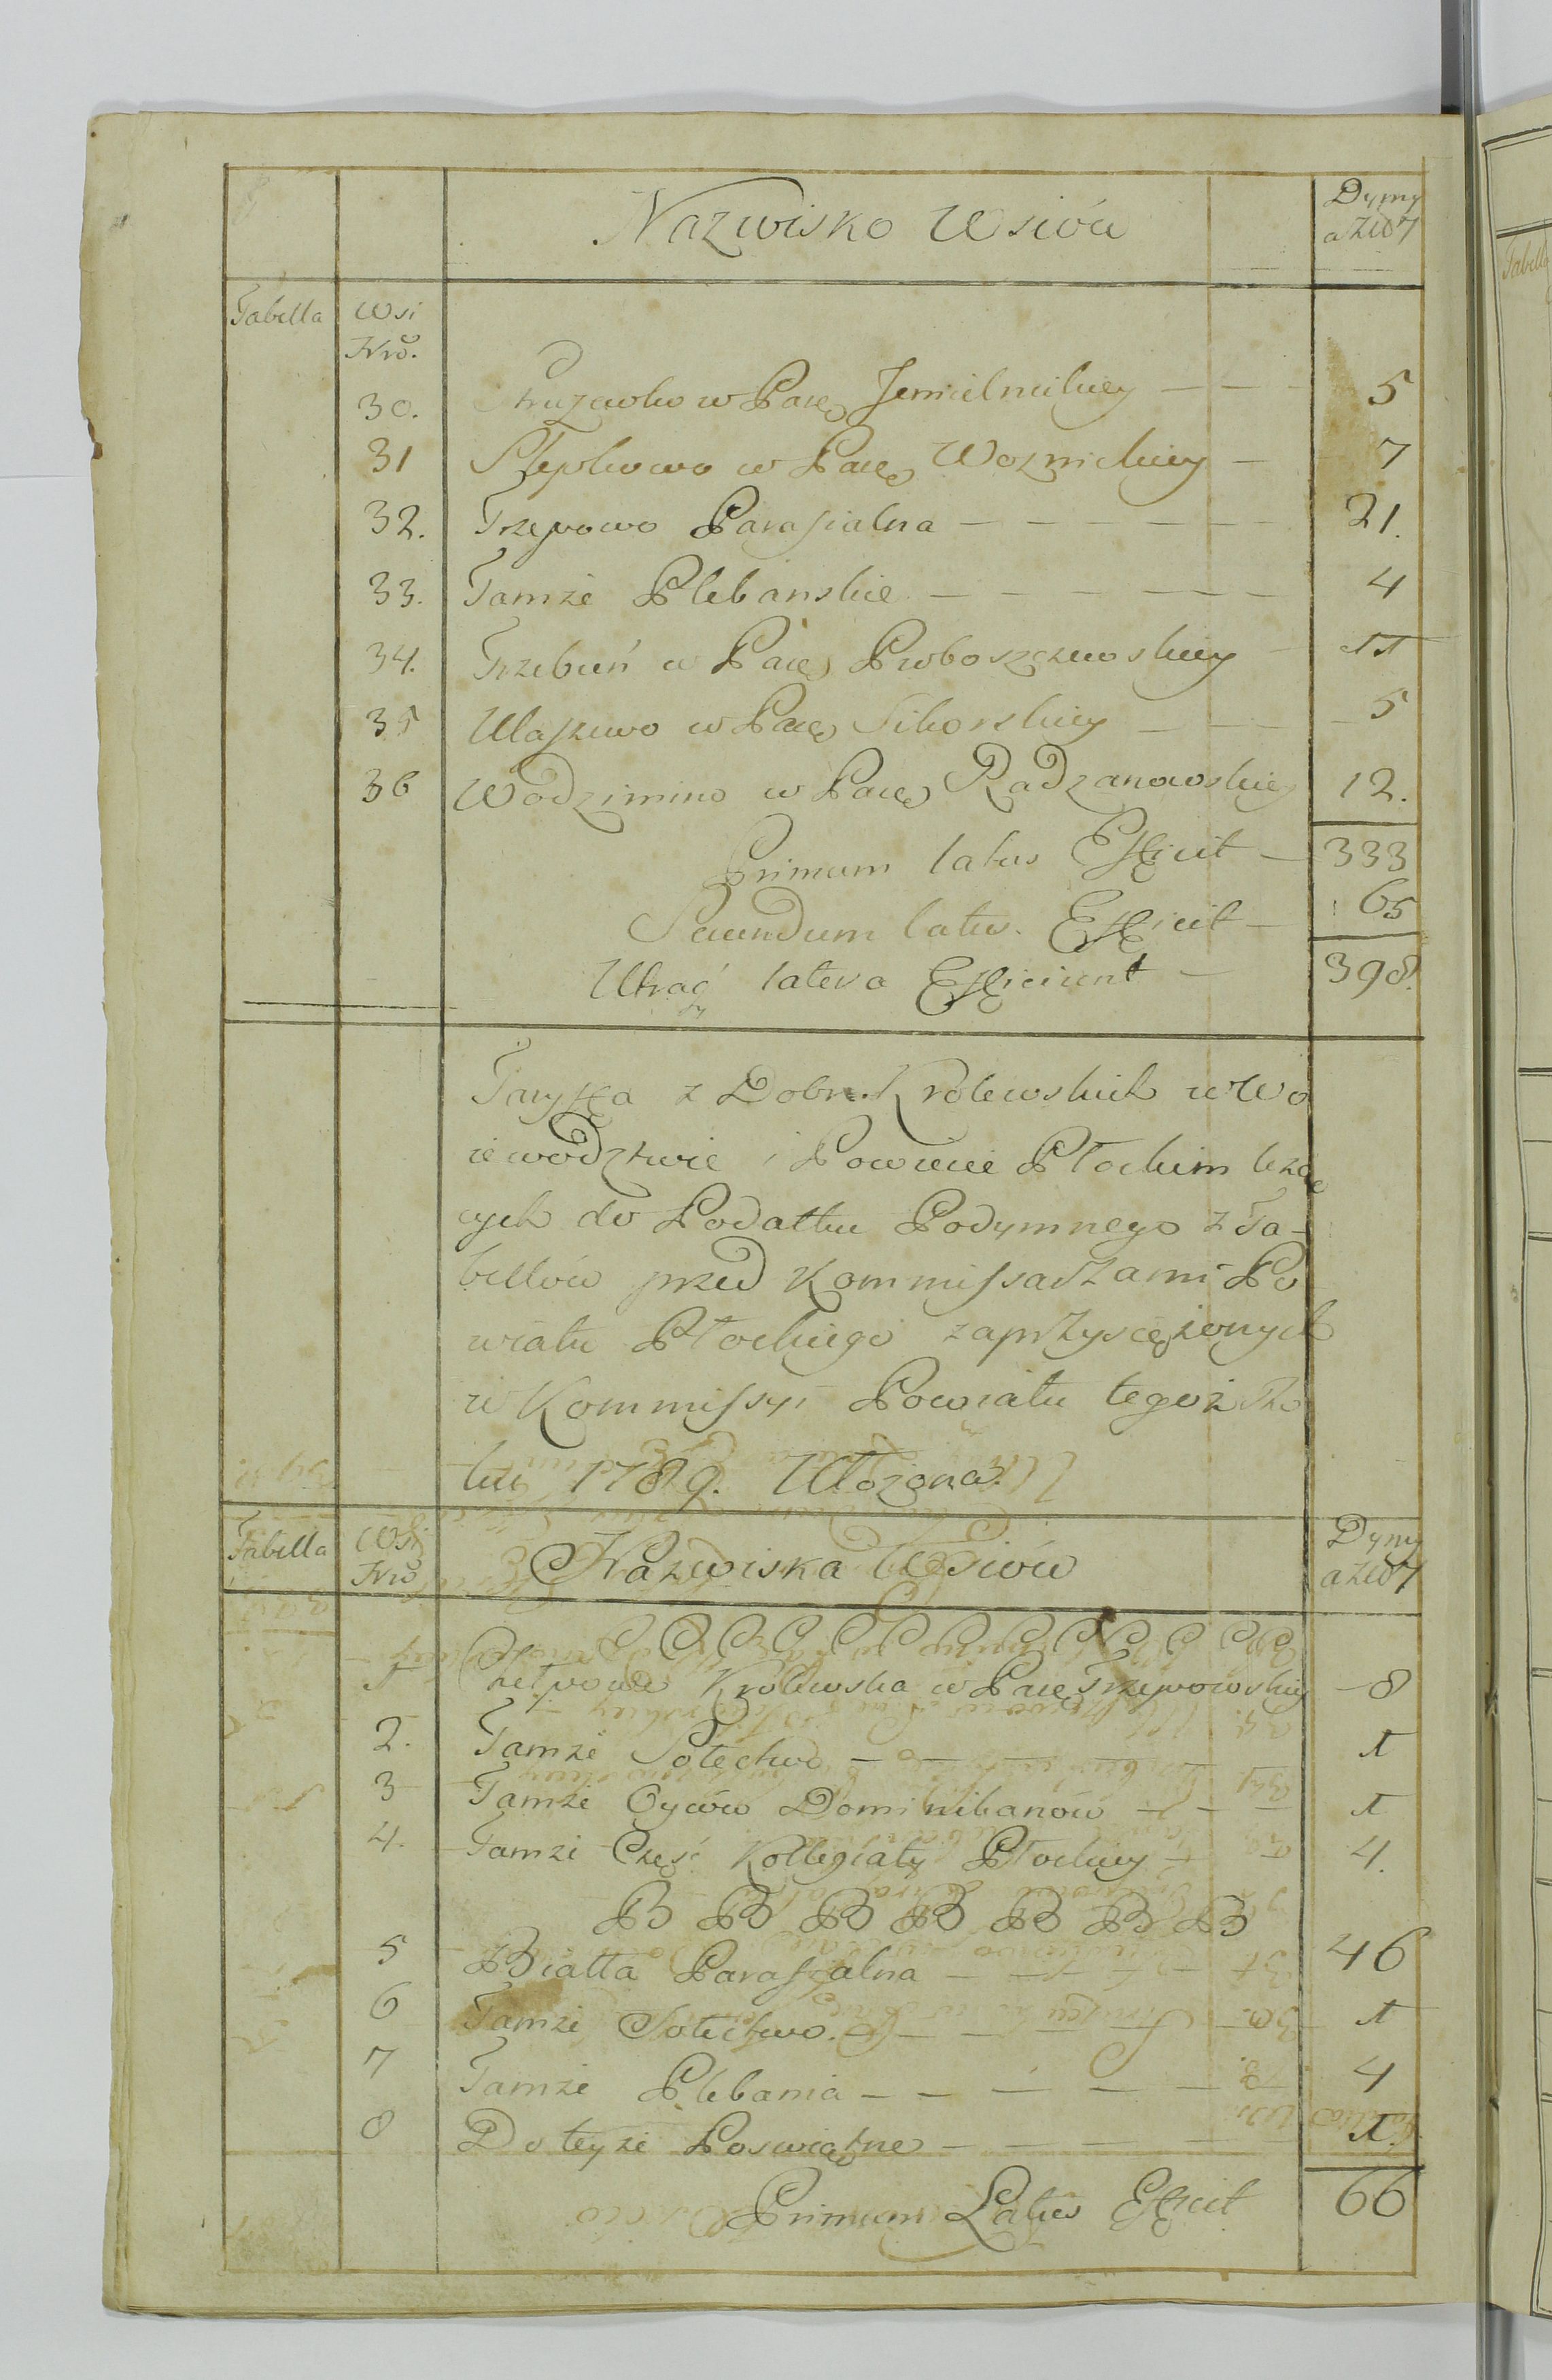 Nazwisko Wsiów
Dymy
a Zł 7
Tabella Wsi
Nrõ.
30. Struzewko w Parę Jemielnickiey — — — 5
31 Stępkowo w Parę Woznickiey — 7
32. Trzepowo Parafialna — — — — — — 21.
33. Tamże Plebanskie — — — — — — — 4
34. Trzebuń w Parę Proboszczewskiey — 11
35 Ulaszewo w Parę Sikorskiey — — — 5
36 Wodzimino w Parę Radzanowskiey 12.
Primum latus Efficit — 333
Secundum latus. Efficit — 65
Utraq latera Efficiunt — 398.
Taryffa z Dobr Krolewskich w Wo
iewodztwie i Powiecie Płockim leżą
cych do Podatku Podymnego z Ta-
bellów przed Kommissarzami Po
wiatu Płockiego zaprzysiężonych
w Kommissyi Powiatu tegoż Ro
ku 1789. Ułożona.
Tabella Wsi
Nrõ
Nazwiska Wsiów
Dymy
a Zł 7
C C C C C C C C C C C C
1 Chełpowo Krolewska w Parę Trzepowskiey — 8
2. Tamże Sołectwo — — — — — — 1
3 Tamże Oyców Dominikanów — — — 1
4. Tamże Część Kollegiaty Płockiey — 4.
B B B B B B B
5 Białła Parafialna — — — — 46
6 Tamże Sołectwo. — — — — 1
7 Tamże Plebania — — — — — — 4
8 Do teyże Poswiątne — — — — — 1.
Primum Latus Efficit 66